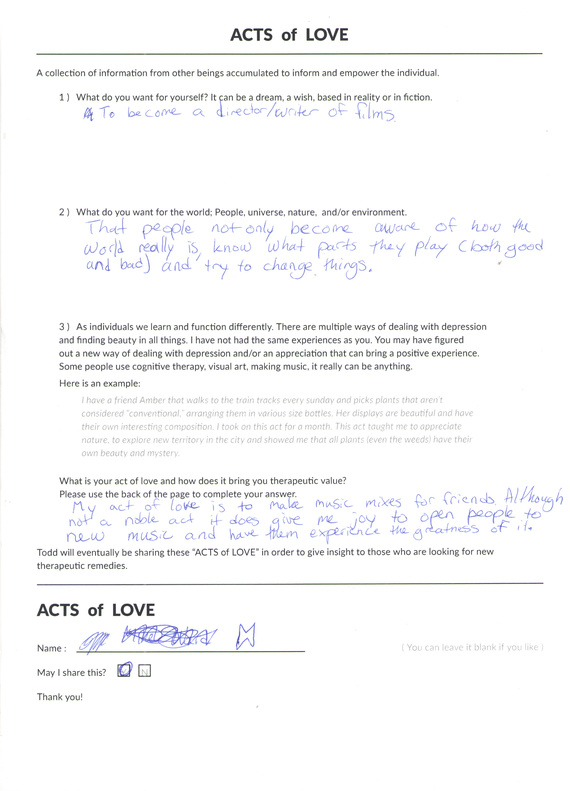 ACTS of LOVE
A collection of information from other beings accumulated to inform and empower the individual.
1 ) What do you want for yourself? It can be a dream, a wish, based in reality or in fiction.
To become a director/writer of films
2 ) What do you want for the world; People, universe, nature, and/or environment.
That people not only become aware of how the
world really is, know what parts they play (both good
and bad) and try to change things.
3 ) As individuals we learn and function differently. There are multiple ways of dealing with depression
and finding beauty in all things. I have not had the same experiences as you. You may have figured
out a new way of dealing with depression and/or an appreciation that can bring a positive experience.
Some people use cognitive therapy, visual art, making music, it really can be anything.
Here is an example:
I have a friend Amber that walks to the train tracks every sunday and picks plants that aren't
considered "conventional," arranging them in various size bottles. Her displays are beautiful and have
their own interesting composition. I took on this act for a month. This act taught me to appreciate
nature, to explore new territory in the city and showed me that all plants (even the weeds) have their
own beauty and mystery.
What is your act of love and how does it bring you therapeutic value?
Please use the back of the page to complete your answer.
My act of love is to make music mixes for friends. Although
not a noble act it does give me joy to open people to
new music and have them experience the greatness of it.
Todd will eventually be sharing these "ACTS of LOVE" in order to give insight to those who are looking for new
therapeutic remedies.
ACTS of LOVE
Name :
( You can leave it blank if you like )
May I share this? Y N
Thank you!